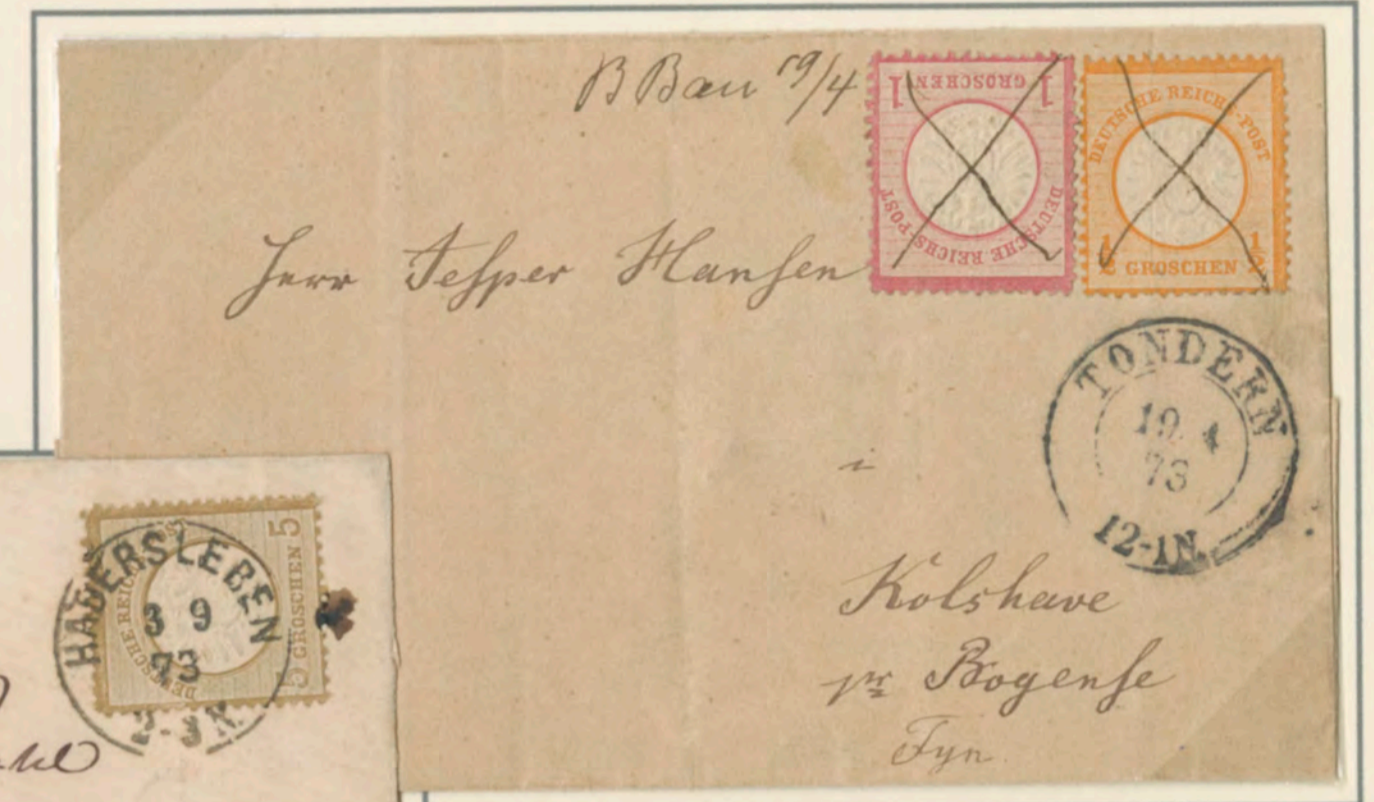 B Bau 19/4
1 GROSCHEN 1
DEUTSCHE REICHS-POST
DEUTSCHE REICHS-POST
1/2 GROSCHEN 1/2
Herr Jesper Hansen
TONDERN
19 4
73
12-1N.
i
Kolshave
pr Bogense
Fyn
DEUTSCHE REICHS-POST
5 GROSCHEN 5
HADERSLEBEN
3 9
73